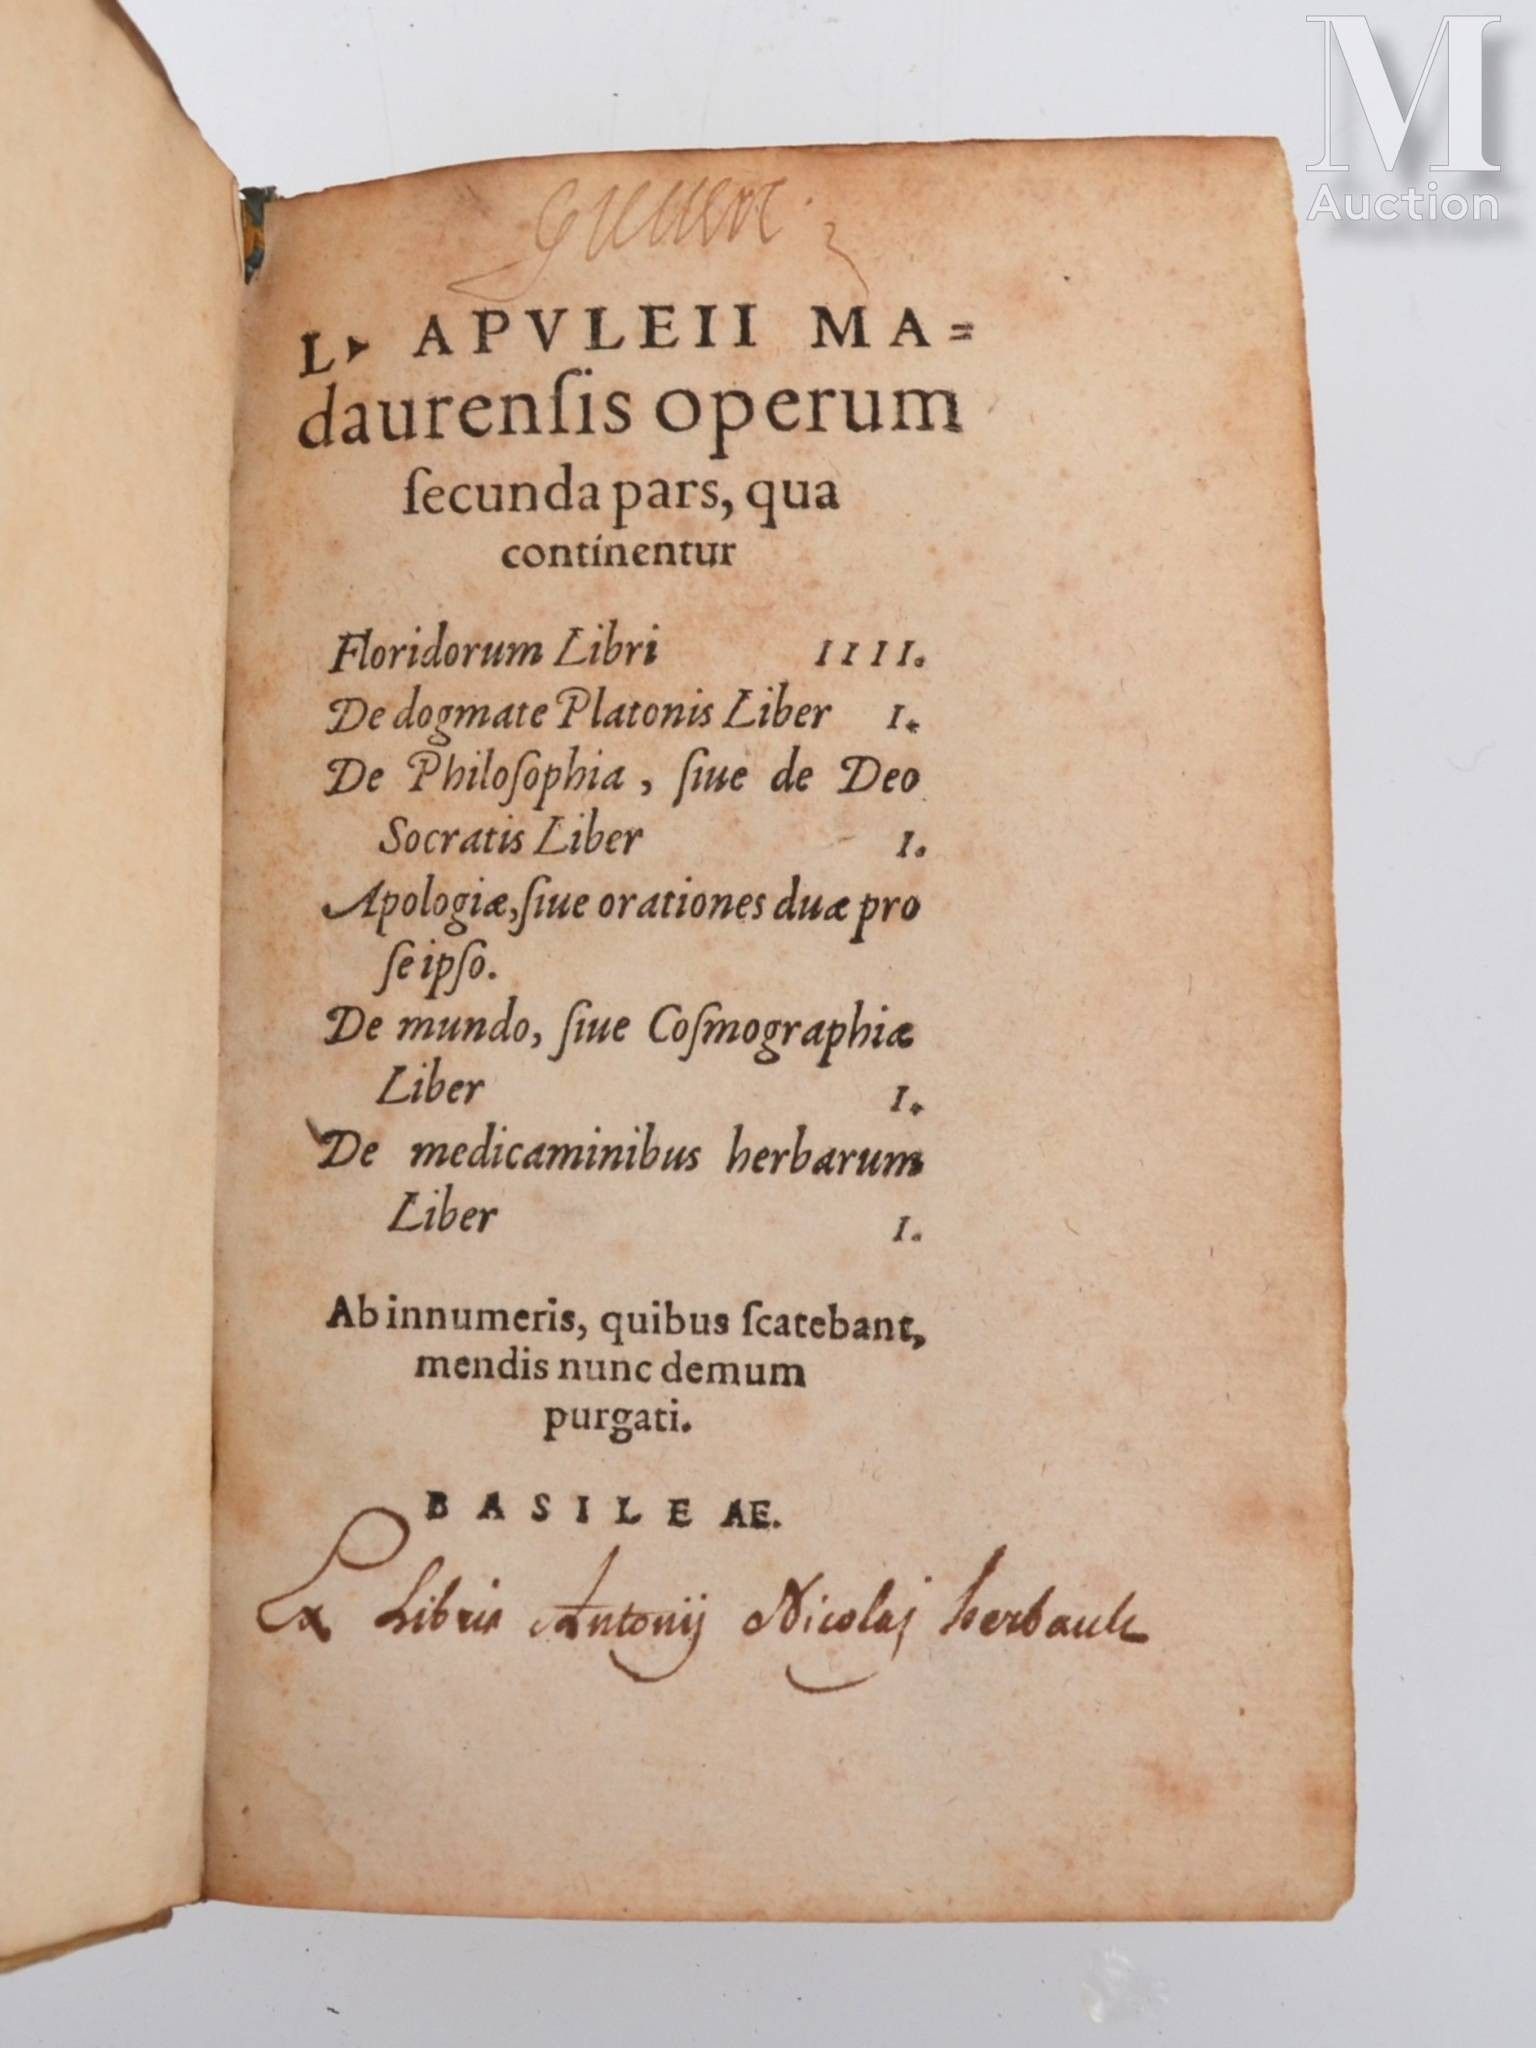 M
Auction
L. APVLEII MA=
daurenſis operum
ſecunda pars, qua
continentur
Floridorum Libri IIII.
De dogmate Platonis Liber I.
De Philoſophia, ſiue de Deo
Socratis Liber I.
Apologiæ, ſiue orationes duæ pro
ſe ipſo.
De mundo, ſiue Coſmographiæ
Liber I.
De medicaminibus herbarum
Liber I.
Ab innumeris, quibus ſcatebant,
mendis nunc demum
purgati.
BASILEAE.
Ex Libris Antonij Nicolaj